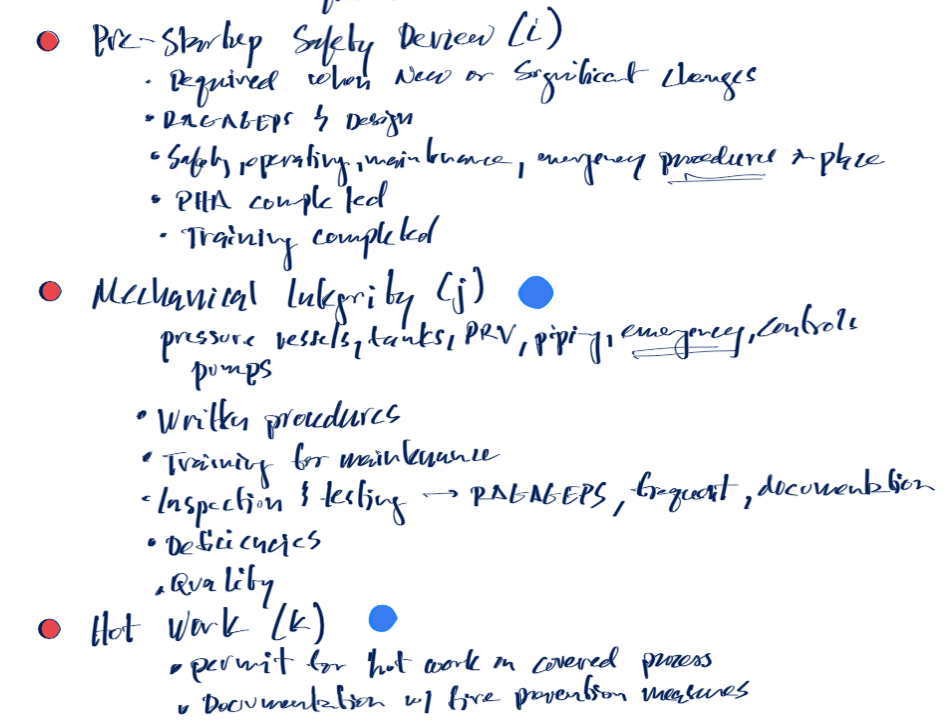 Pre-Startup Safety Review (i)
• Required when New or Significant changes
• RAGAGEPS & Design
• Safety, operating, maintenance, emergency procedures in place
• PHA completed
• Training completed
Mechanical Integrity (j)
pressure vessels, tanks, PRV, piping, emergency, controls
pumps
• Written procedures
• Training for maintenance
• Inspection & testing → RAGAGEPS, frequent, documentation
• Deficiencies
• Quality
Hot Work (k)
• permit for hot work on covered process
• Documentation w/ fire prevention measures